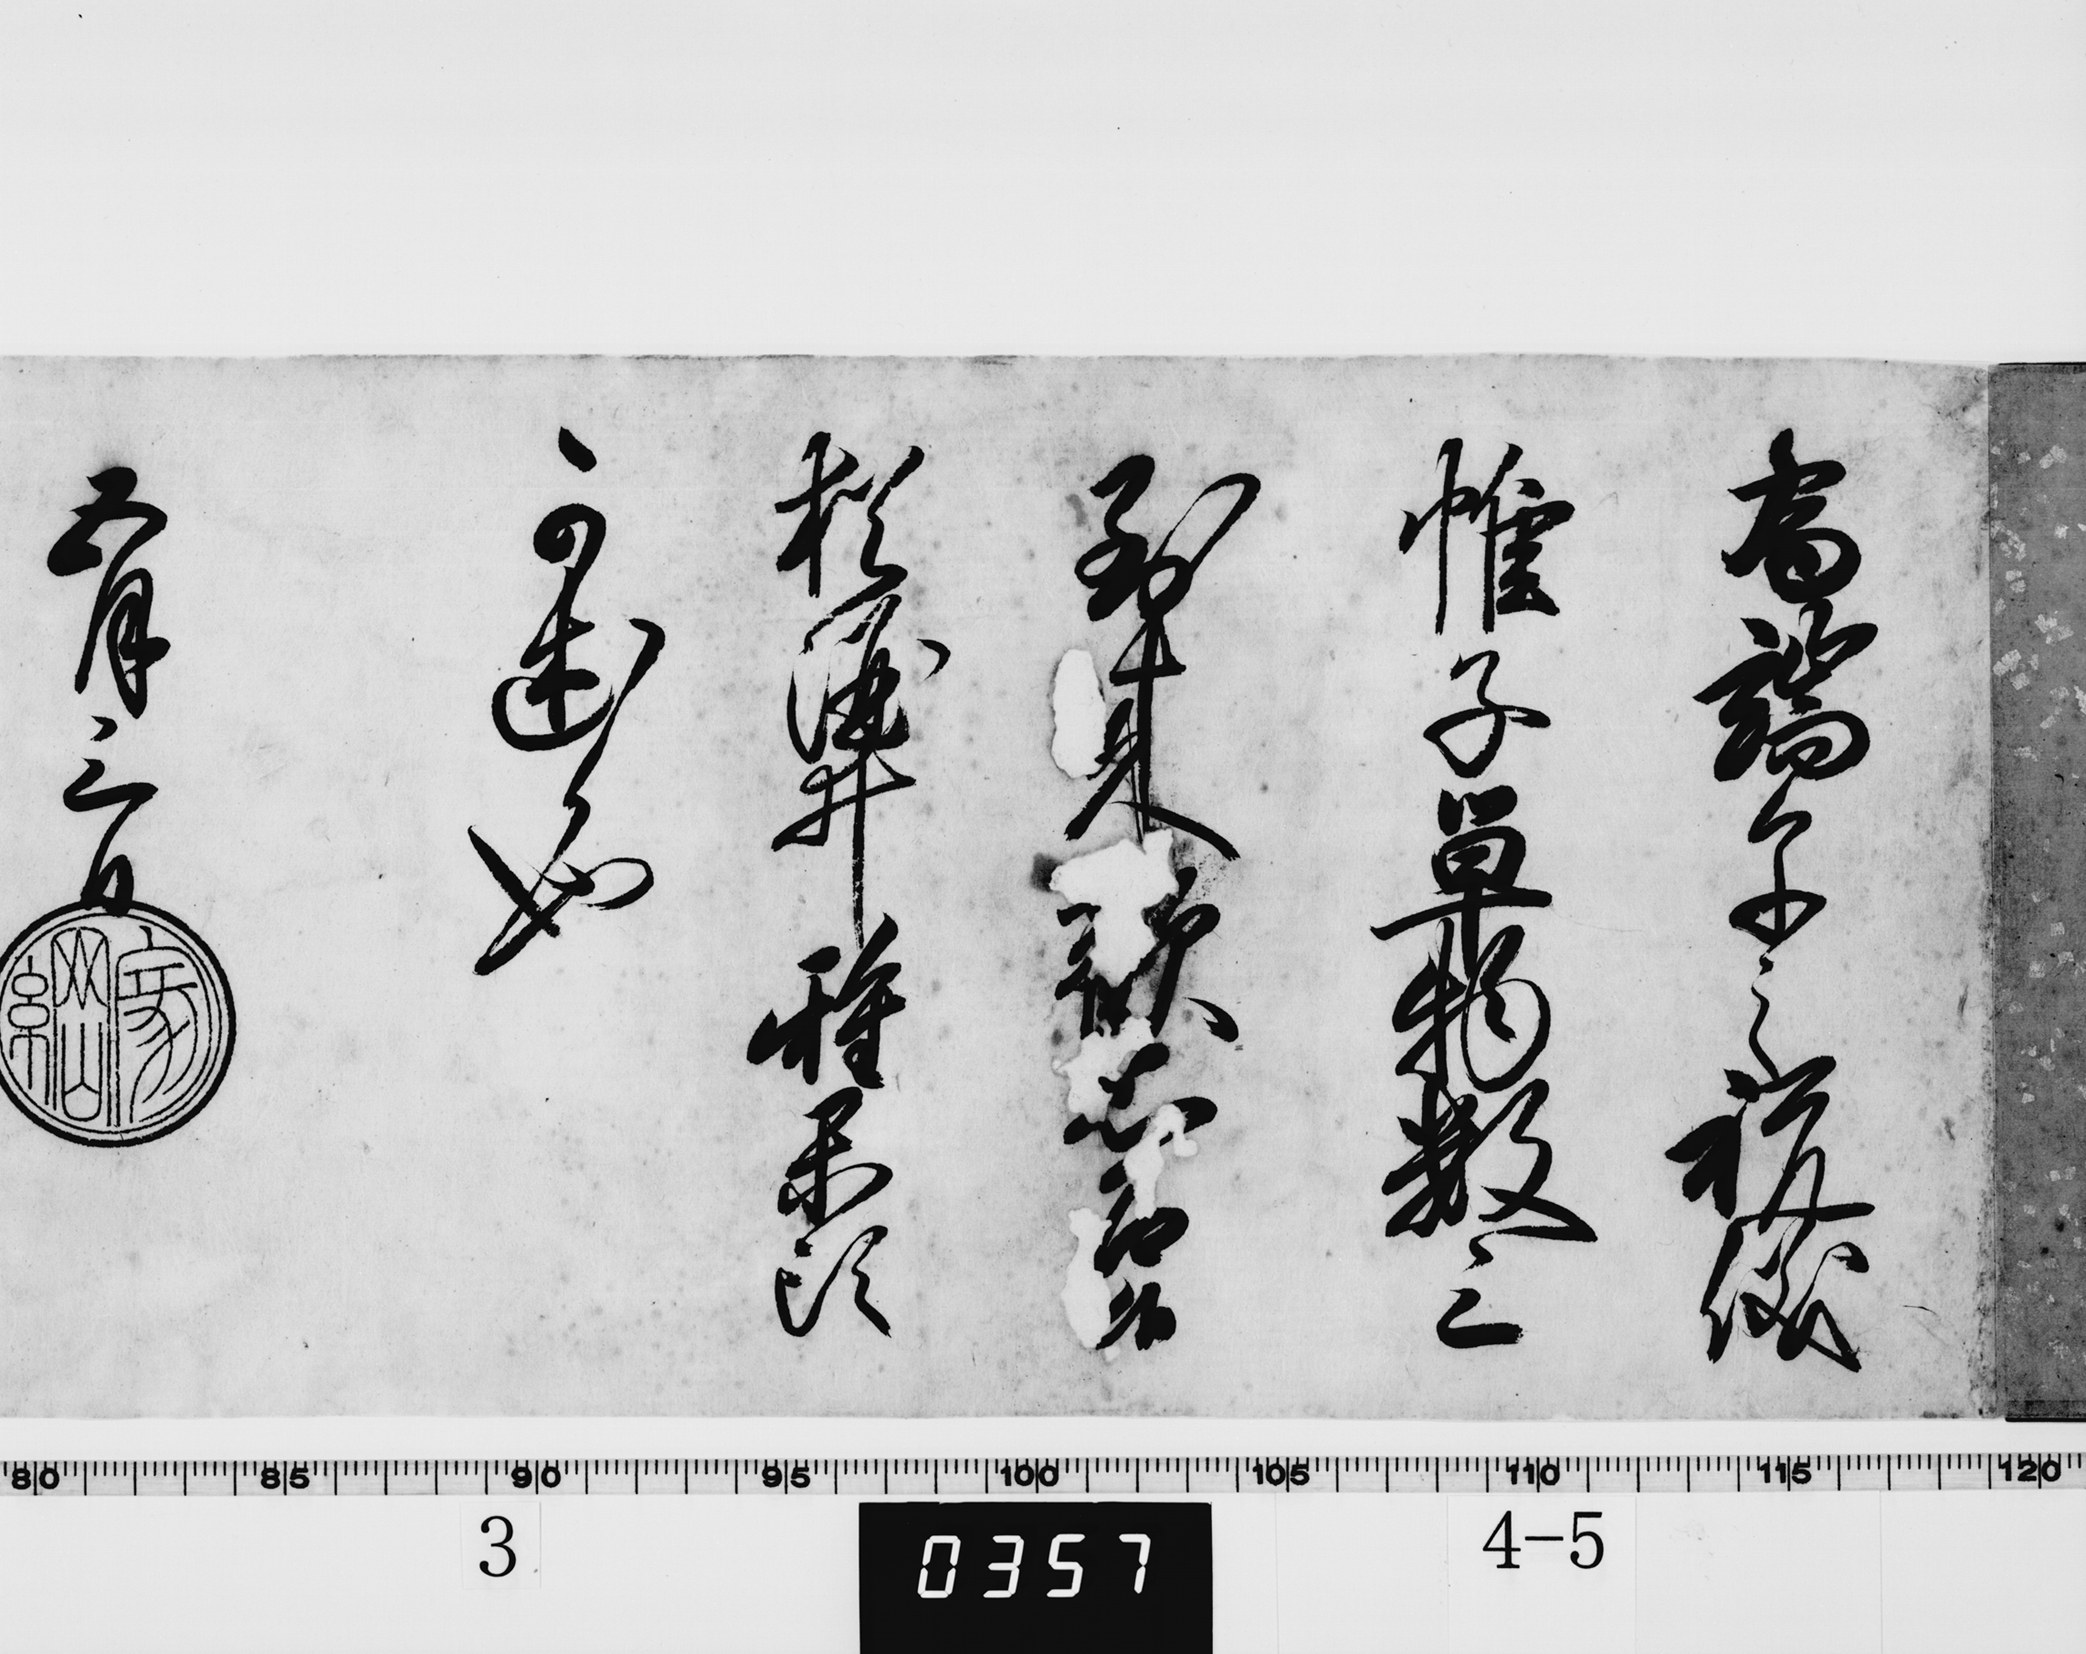 為端午之祝儀
帷子単物数三
到来歓思召候
猶酒井雅楽頭
可述候也
五月三日
家綱
80 85 90 95 100 105 110 115 120
3 0357 4-5